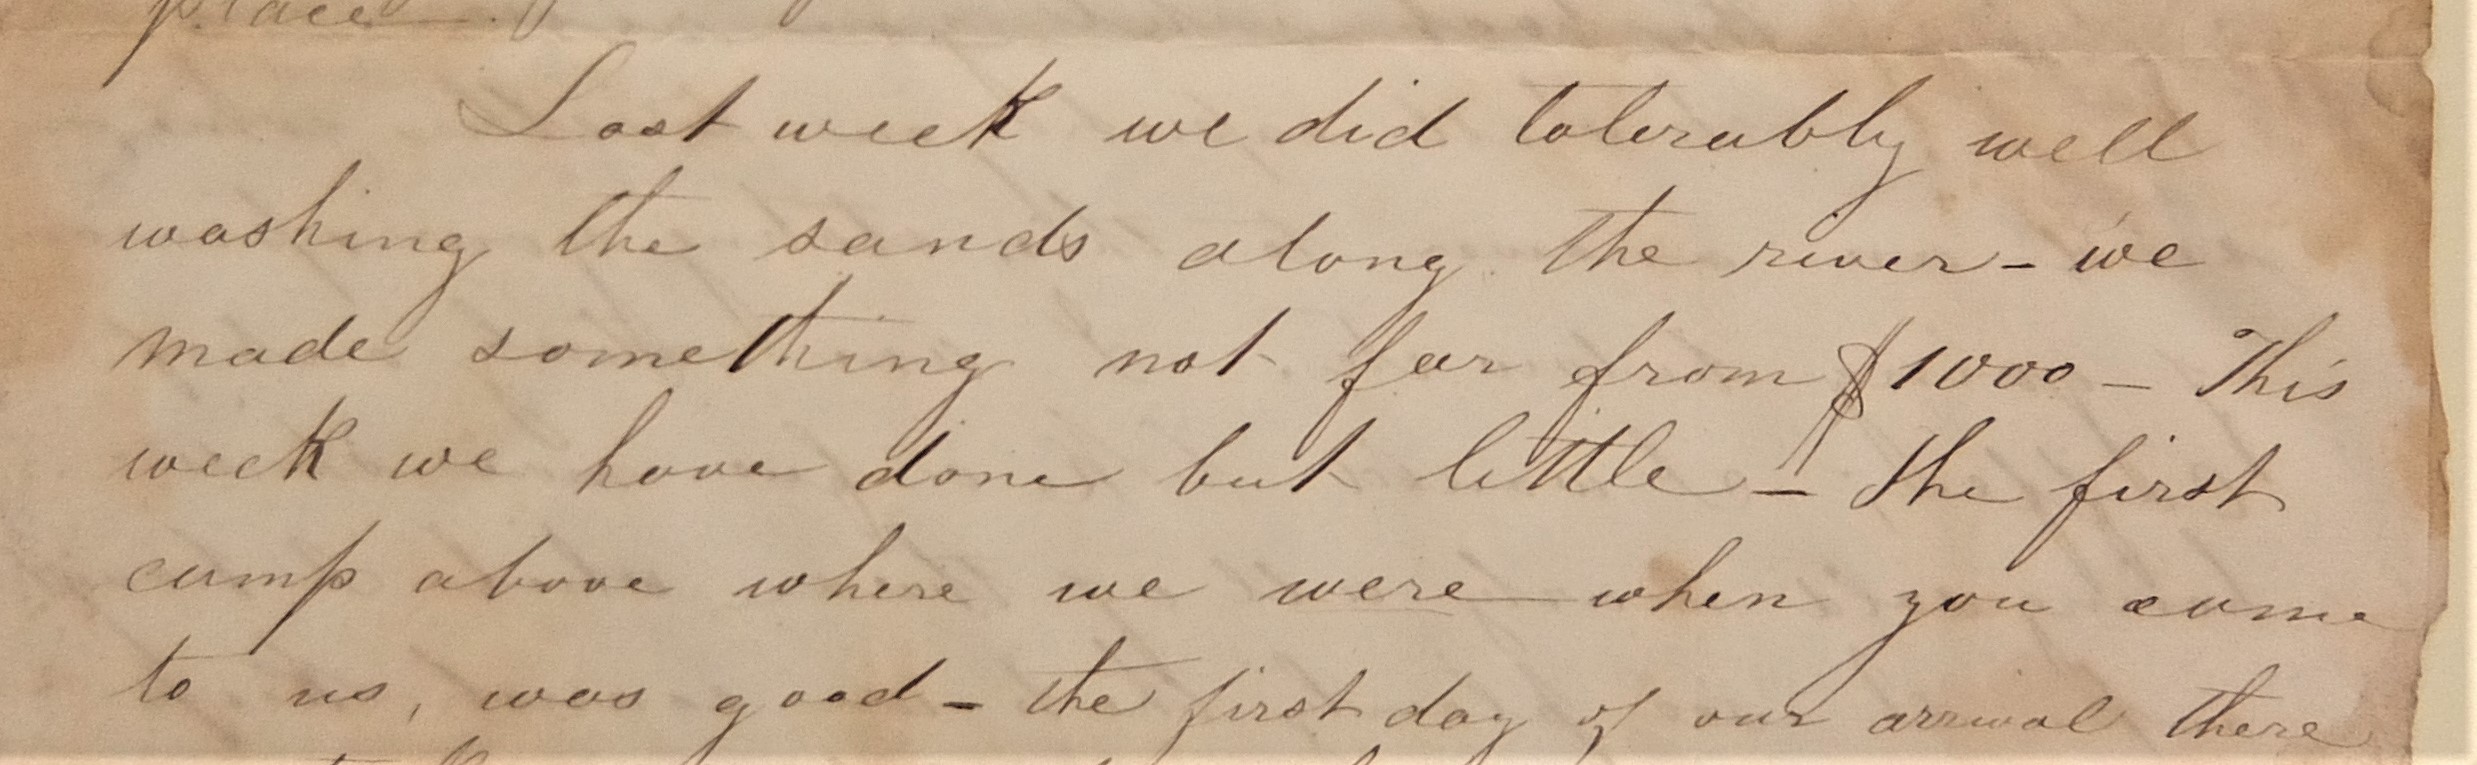 place
Last week we did tolerably well
washing the sands along the river - we
made something not far from $1000 - This
week we have done but little - the first
camp above where we were when you came
to us, was good - the first day of our arrival there